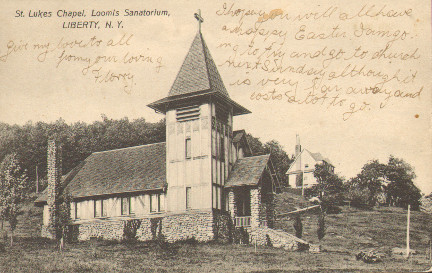 St. Lukes Chapel, Loomis Sanatorium,
LIBERTY, N. Y.
give my love to all
from your loving
Florry
I hope you will all have
a happy Easter I am go-
ing to try and go to church
next Sunday although it
is very far away and
costs a lot to go.